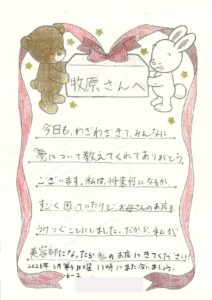 牧原さんへ
今日も、わざわざきて、みんなに
夢について教えてくれてありがとう
ございます。私は、将来何になるか、
すごく困っていたけど、お母さんのお店を
つぐことにしました。だから、私が
美容師になったか私のお店にきてください。
2028年 3月 第4日曜 13時にまた会いましょう。